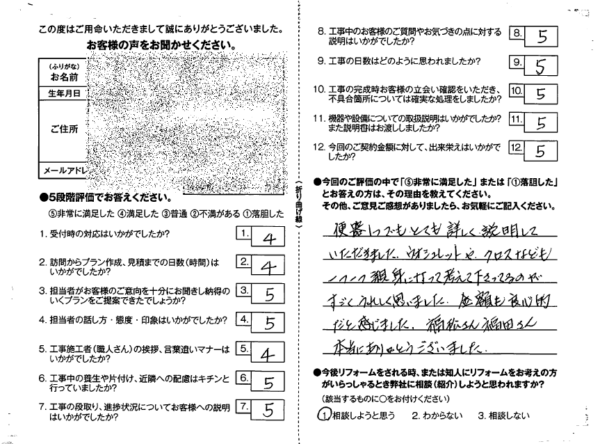 この度はご用命いただきまして誠にありがとうございました。
お客様の声をお聞かせください。
(ふりがな)
お名前
生年月日
ご住所
メールアドレ
●5段階評価でお答えください。
⑤非常に満足した ④満足した ③普通 ②不満がある ①落胆した
1. 受付時の対応はいかがでしたか?
1. 4
2. 訪問からプラン作成、見積までの日数(時間)は
いかがでしたか?
2. 4
3. 担当者がお客様のご意向を十分にお聞きし納得の
いくプランをご提案できたでしょうか?
3. 5
4. 担当者の話し方・態度・印象はいかがでしたか?
4. 5
5. 工事施工者(職人さん)の挨拶、言葉遣いマナーは
いかがでしたか?
5. 4
6. 工事中の養生や片付け、近隣への配慮はキチンと
行っていましたか?
6. 5
7. 工事の段取り、進捗状況についてお客様への説明
はいかがでしたか?
7. 5
(折り曲げ線)
8. 工事中のお客様のご質問やお気づきの点に対する
説明はいかがでしたか?
8. 5
9. 工事の日数はどのように思われましたか?
9. 5
10. 工事の完成時お客様の立会い確認をいただき、
不具合箇所については確実な処理をしましたか?
10. 5
11. 機器や設備についての取扱説明はいかがでしたか?
また説明書はお渡ししましたか?
11. 5
12. 今回のご契約金額に対して、出来栄えはいかがで
したか?
12. 5
●今回のご評価の中で「⑤非常に満足した」または「①落胆した」
とお答えの方は、その理由を教えてください。
その他、ご意見ご感想がありましたら、お気軽にご記入ください。
便器1つでもとても詳しく説明して
いただきました。ウオシュレットや、クロスなども
1つ1つ親身になって考えて下さってるのが
すごくうれしく思いました。金額も良心的
だと感じました。 福田さん
本当にありがとうございました。
●今後リフォームをされる時、または知人にリフォームをお考えの方
がいらっしゃるとき弊社に相談(紹介)しようと思われますか?
(該当するものに○をお付けください)
1. 相談しようと思う 2. わからない 3. 相談しない